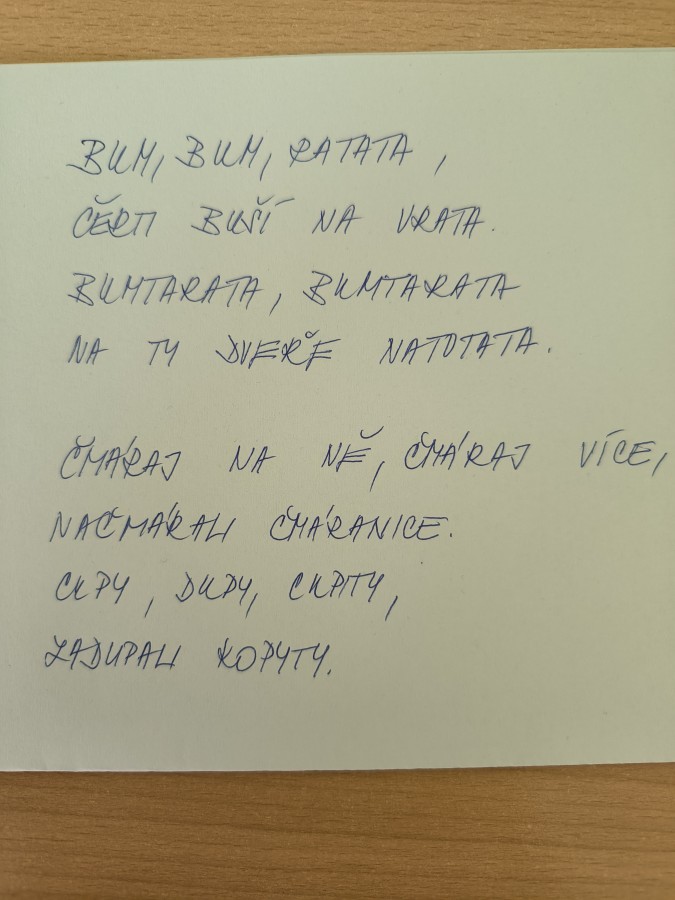 BUM, BUM, RATATA,
ČERTI BUŠÍ NA VRATA.
BUMTARATA, BUMTARATA
NA TY DVEŘE NATOTATA.
ČMÁRAJ NA NĚ, ČMÁRAJ VÍCE,
NAČMÁRALI ČMÁRANICE.
CUPY, DUPY, CUPITY,
ZADUPALI KOPYTY.